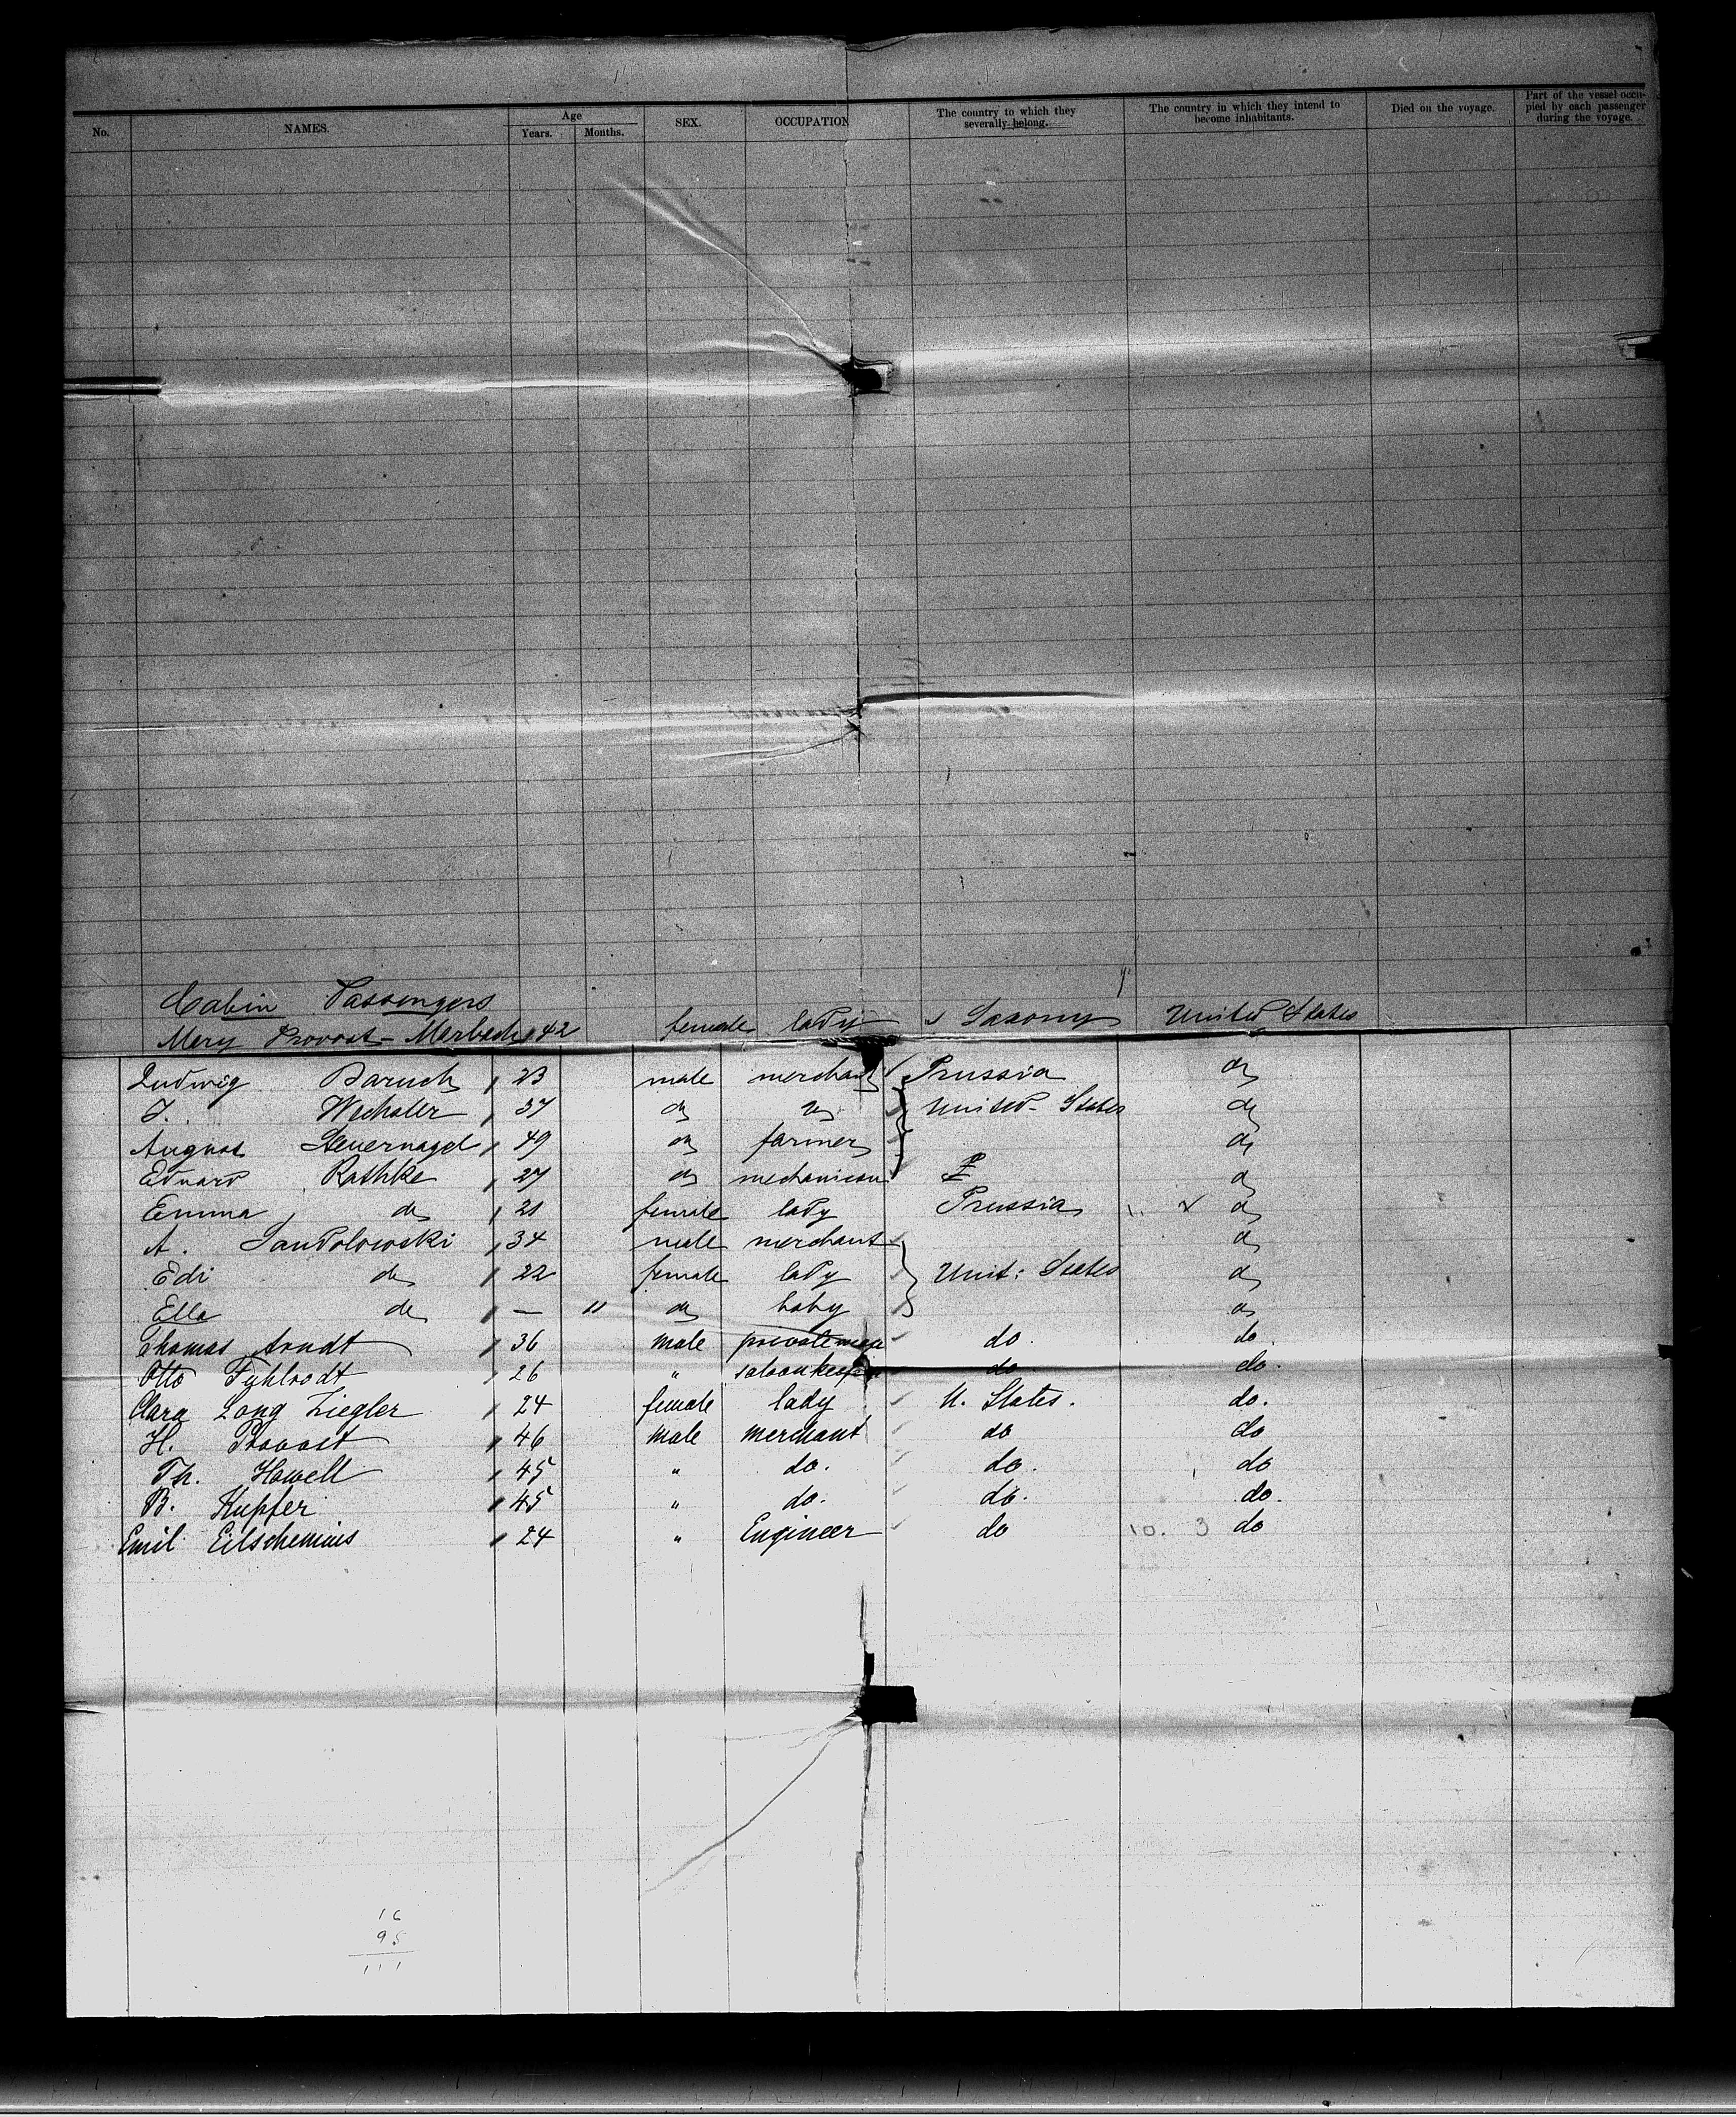 No. NAMES. Age Years. Months. SEX. OCCUPATION The country to which they severally belong. The country in which they intend to become inhabitants. Died on the voyage. Part of the vessel occupied by each passenger during the voyage.
Cabin Passengers
Mary Provost-Marbach 42 female lady Saxony United States
Ludwig Baruch 23 male merchant Prussia do
J. Wechsler 37 do do United States do
August Steuernagel 49 do farmer do
Eduard Rathke 27 do mechanican do
Emma do 21 female lady Prussia do
A. Sandolowski 34 male merchant do
Edi do 22 female lady Unit: States do
Ella do — 11 do baby do
Thomas Arndt 36 male privateman do. do.
Otto Fyhlrodt 26 " saloonkeeper do do.
Clara Long Ziegler 24 female lady U. States. do.
H. Provost 46 male merchant do do
Th. Howell 45 " do. do. do
B. Kupfer 45 " do. do. do.
Emil Eilschemius 24 " Engineer do 10. 3 do
16
95
111